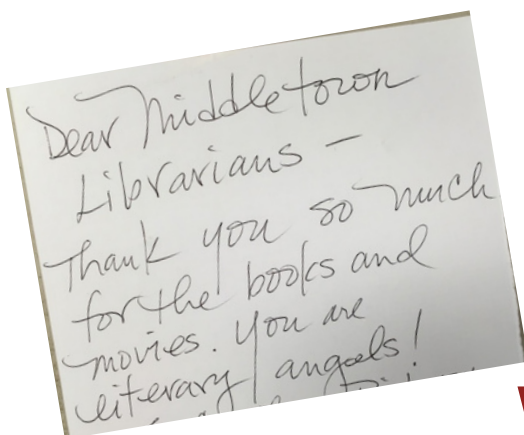 Dear Middletown
Librarians —
Thank you so much
for the books and
movies. You are
literary angels!